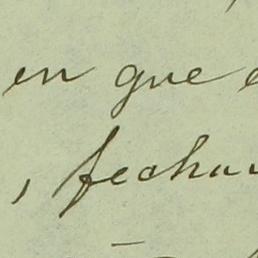 en que
, fecha